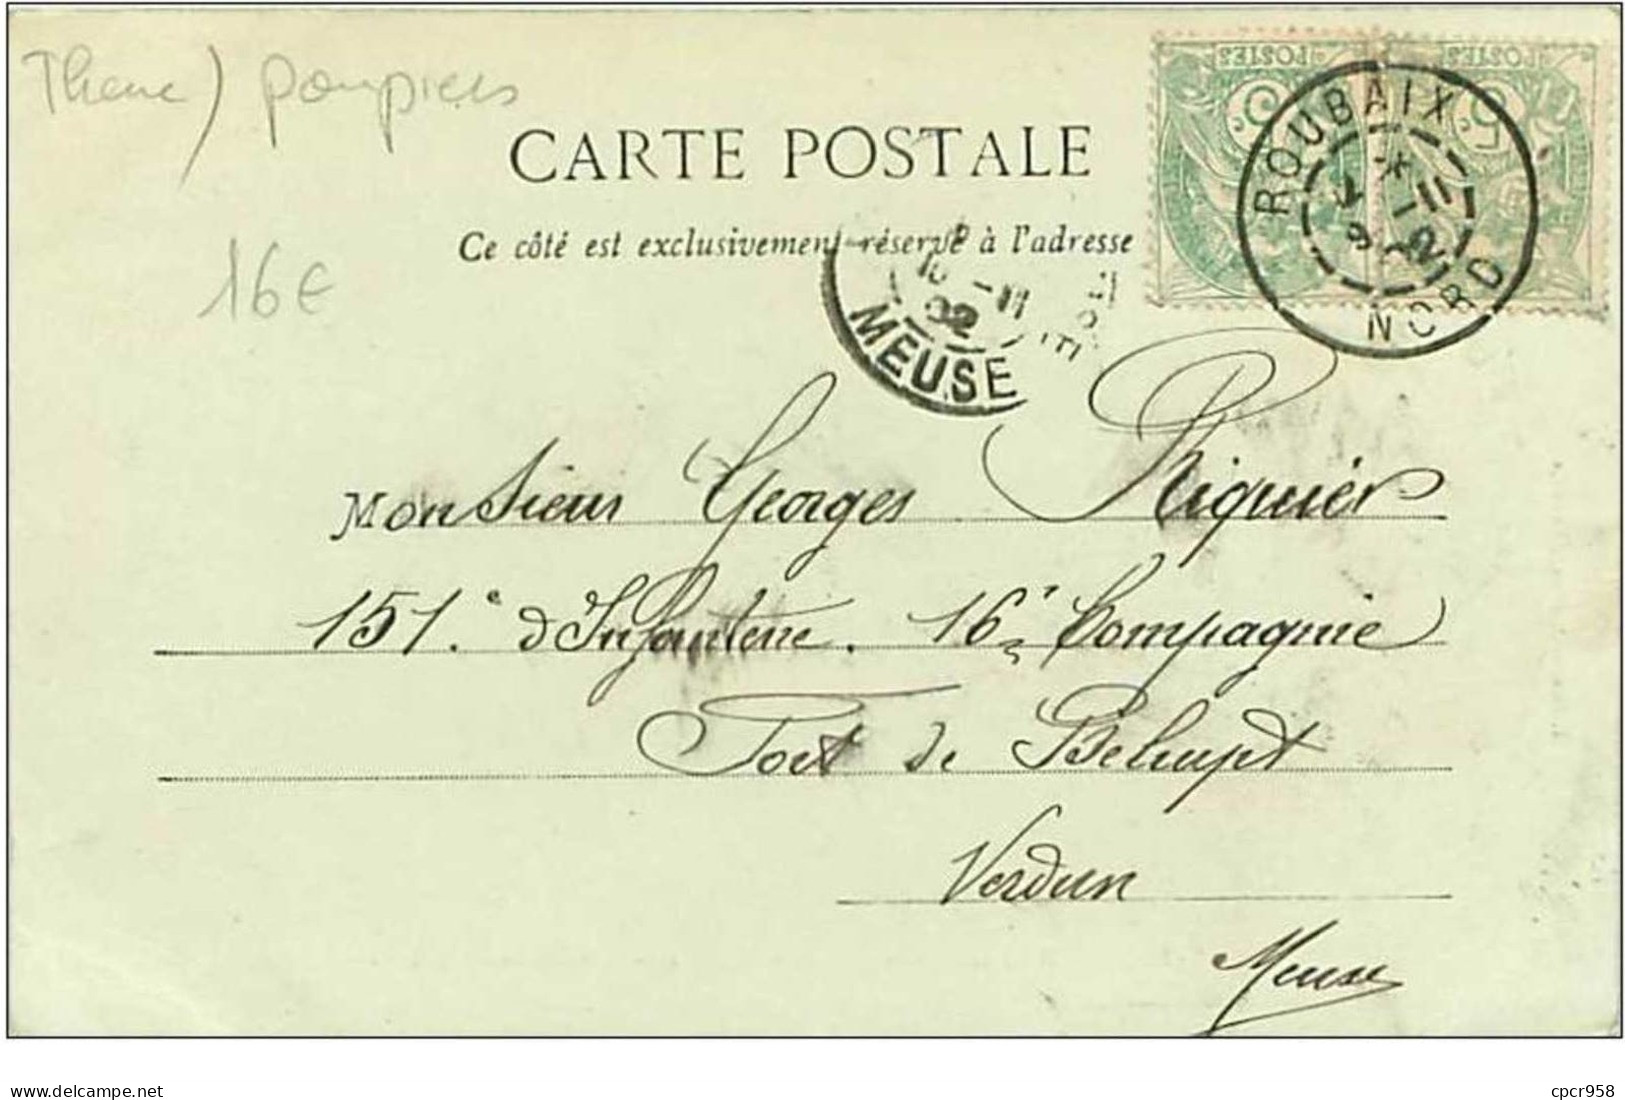 Theme) pompiers
CARTE POSTALE
Ce côté est exclusivement réservé à l'adresse
16€
POSTES POSTES
5c. 5c.
ROUBAIX
11
02
NORD
-11
02
MEUSE
Monsieur Georges Riquier
151.e d'Infanterie. 16e Compagnie
Fort de Belrupt
Verdun
Meuse
www.delcampe.net
cpcr958